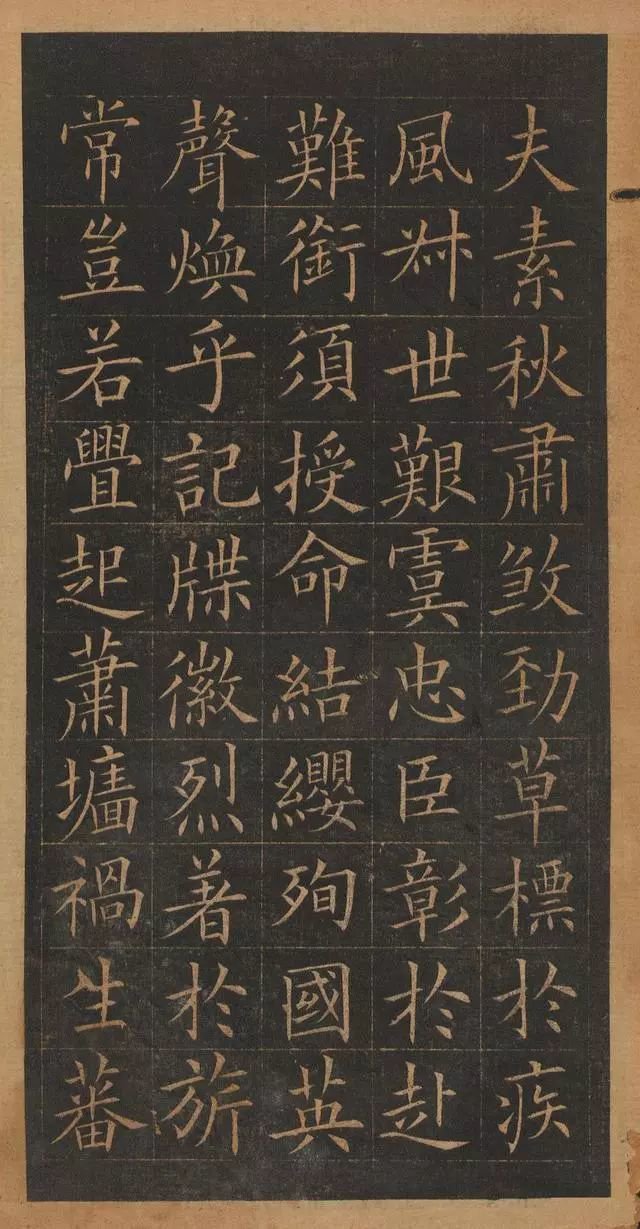 夫素秋肅煞勁草標於疾
風𦭝世艱虞忠臣彰於赴
難銜須授命結纓殉國英
聲煥乎記牒徽烈著於旂
常豈若舋起蕭墻禍生蕃